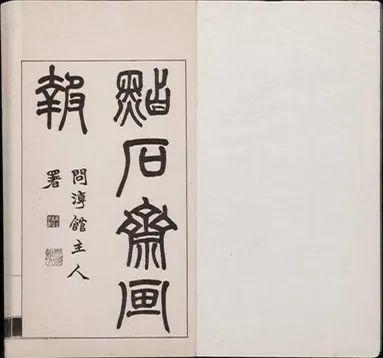 點石齋画
報
問潭館主人
署